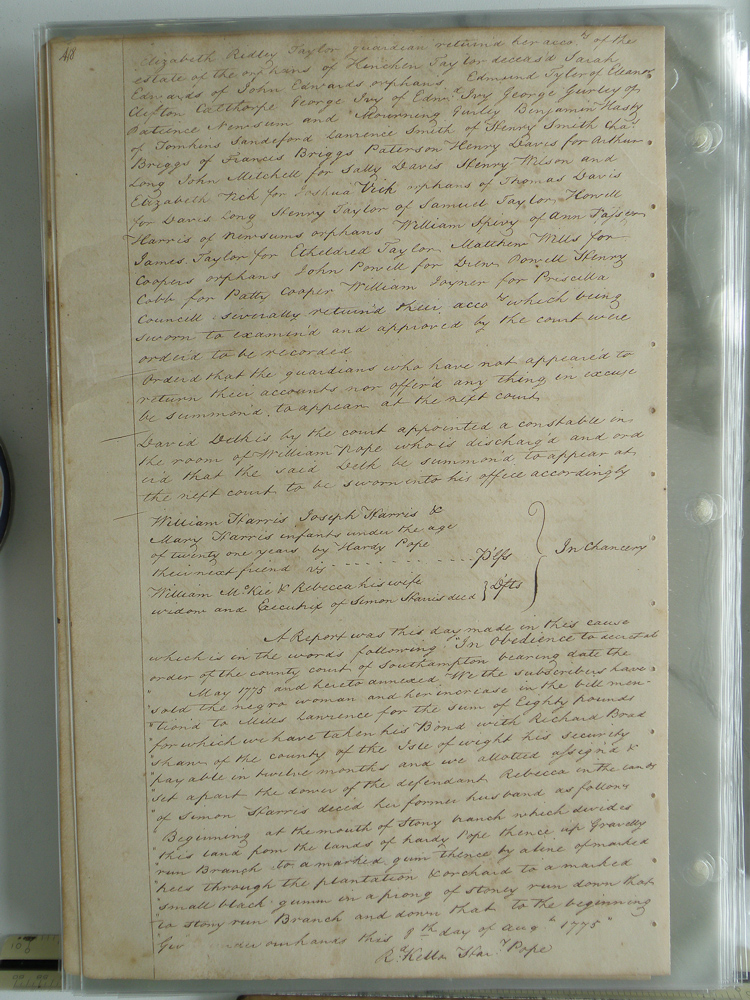 418
Elizabeth Ridley Taylor guardian return'd her acco.ts of the
estate of the orphans of Hinchen Taylor deceas'd Sarah
Edwards of John Edwards orphans Edmund Tylor of Eleanor
Clifton Calthorpe George Ivy of Edw.d Ivy George Gurley of
Patience Newsum and Mourning Gurley Benjamin Hasty
of Tomkins Sandeford Laurence Smith of Henry Smith Cha.s
Briggs of Francis Briggs Paterson Henry Davis for Arthur
Long John Mitchell for Sally Davis Henry Wilson and
Elizabeth Vick for Joshua Vick orphans of Thomas Davis
for Davis Long Henry Taylor of Samuel Taylor Howell
Harris of Newsums orphans William Spivy of Ann
James Taylor for Etheldred Taylor Matthew Wills for
Coopers orphans John Powell for Drew Powell Henry
Cobb for Patty Cooper William Joyner for Priscilla
Councill severally return'd their acco.ts which being
sworn to examin'd and approved by the court were
order'd to be recorded
Order'd that the guardians who have not appeared to
return their accounts nor offer'd any thing in excuse
be summond to appear at the next court
David Delk is by the court appointed a constable in
the room of William Pope who is discharg'd and ord
er'd that the said Delk be summon'd to appear at
the next court to be sworn into his office accordingly
William Harris Joseph Harris &
Mary Harris infants under the age
of twenty one years by Hardy Pope
their next friend vs - - - - - - - - Plfs
In Chancery
William McKie & Rebecca his wife
widow and Executrix of Simon Harris decd } Dfts
A Report was this day made in this cause
which is in the words following "In Obedience to
order of the county court of Southampton bearing date the
" May 1775 and hereto annexed We the subscribers have
"sold the negro woman and her increase in the bill men-
"tion'd to Mills Lawrence for the sum of Eighty pounds
"for which we have taken his Bond with Richard Brad
"shaw of the county of the Isle of wight his security
"payable in twelve months and we allotted assign'd &
"set apart the dower of the defendant Rebecca in the lands
"of Simon Harris dec'd her former husband as follows
"Beginning at the mouth of Stony branch which divides
"this land from the lands of hardy Pope thence up Gravelly
"run Branch to a marked gum thence by a line of marked
"trees through the plantation & orchard to a marked
"small black gum in a prong of stoney run down that
"to stony run Branch and down that to the beginning
"Given under our hands this 9th day of Aug.t 1775"
R.d Kello Har.y Pope